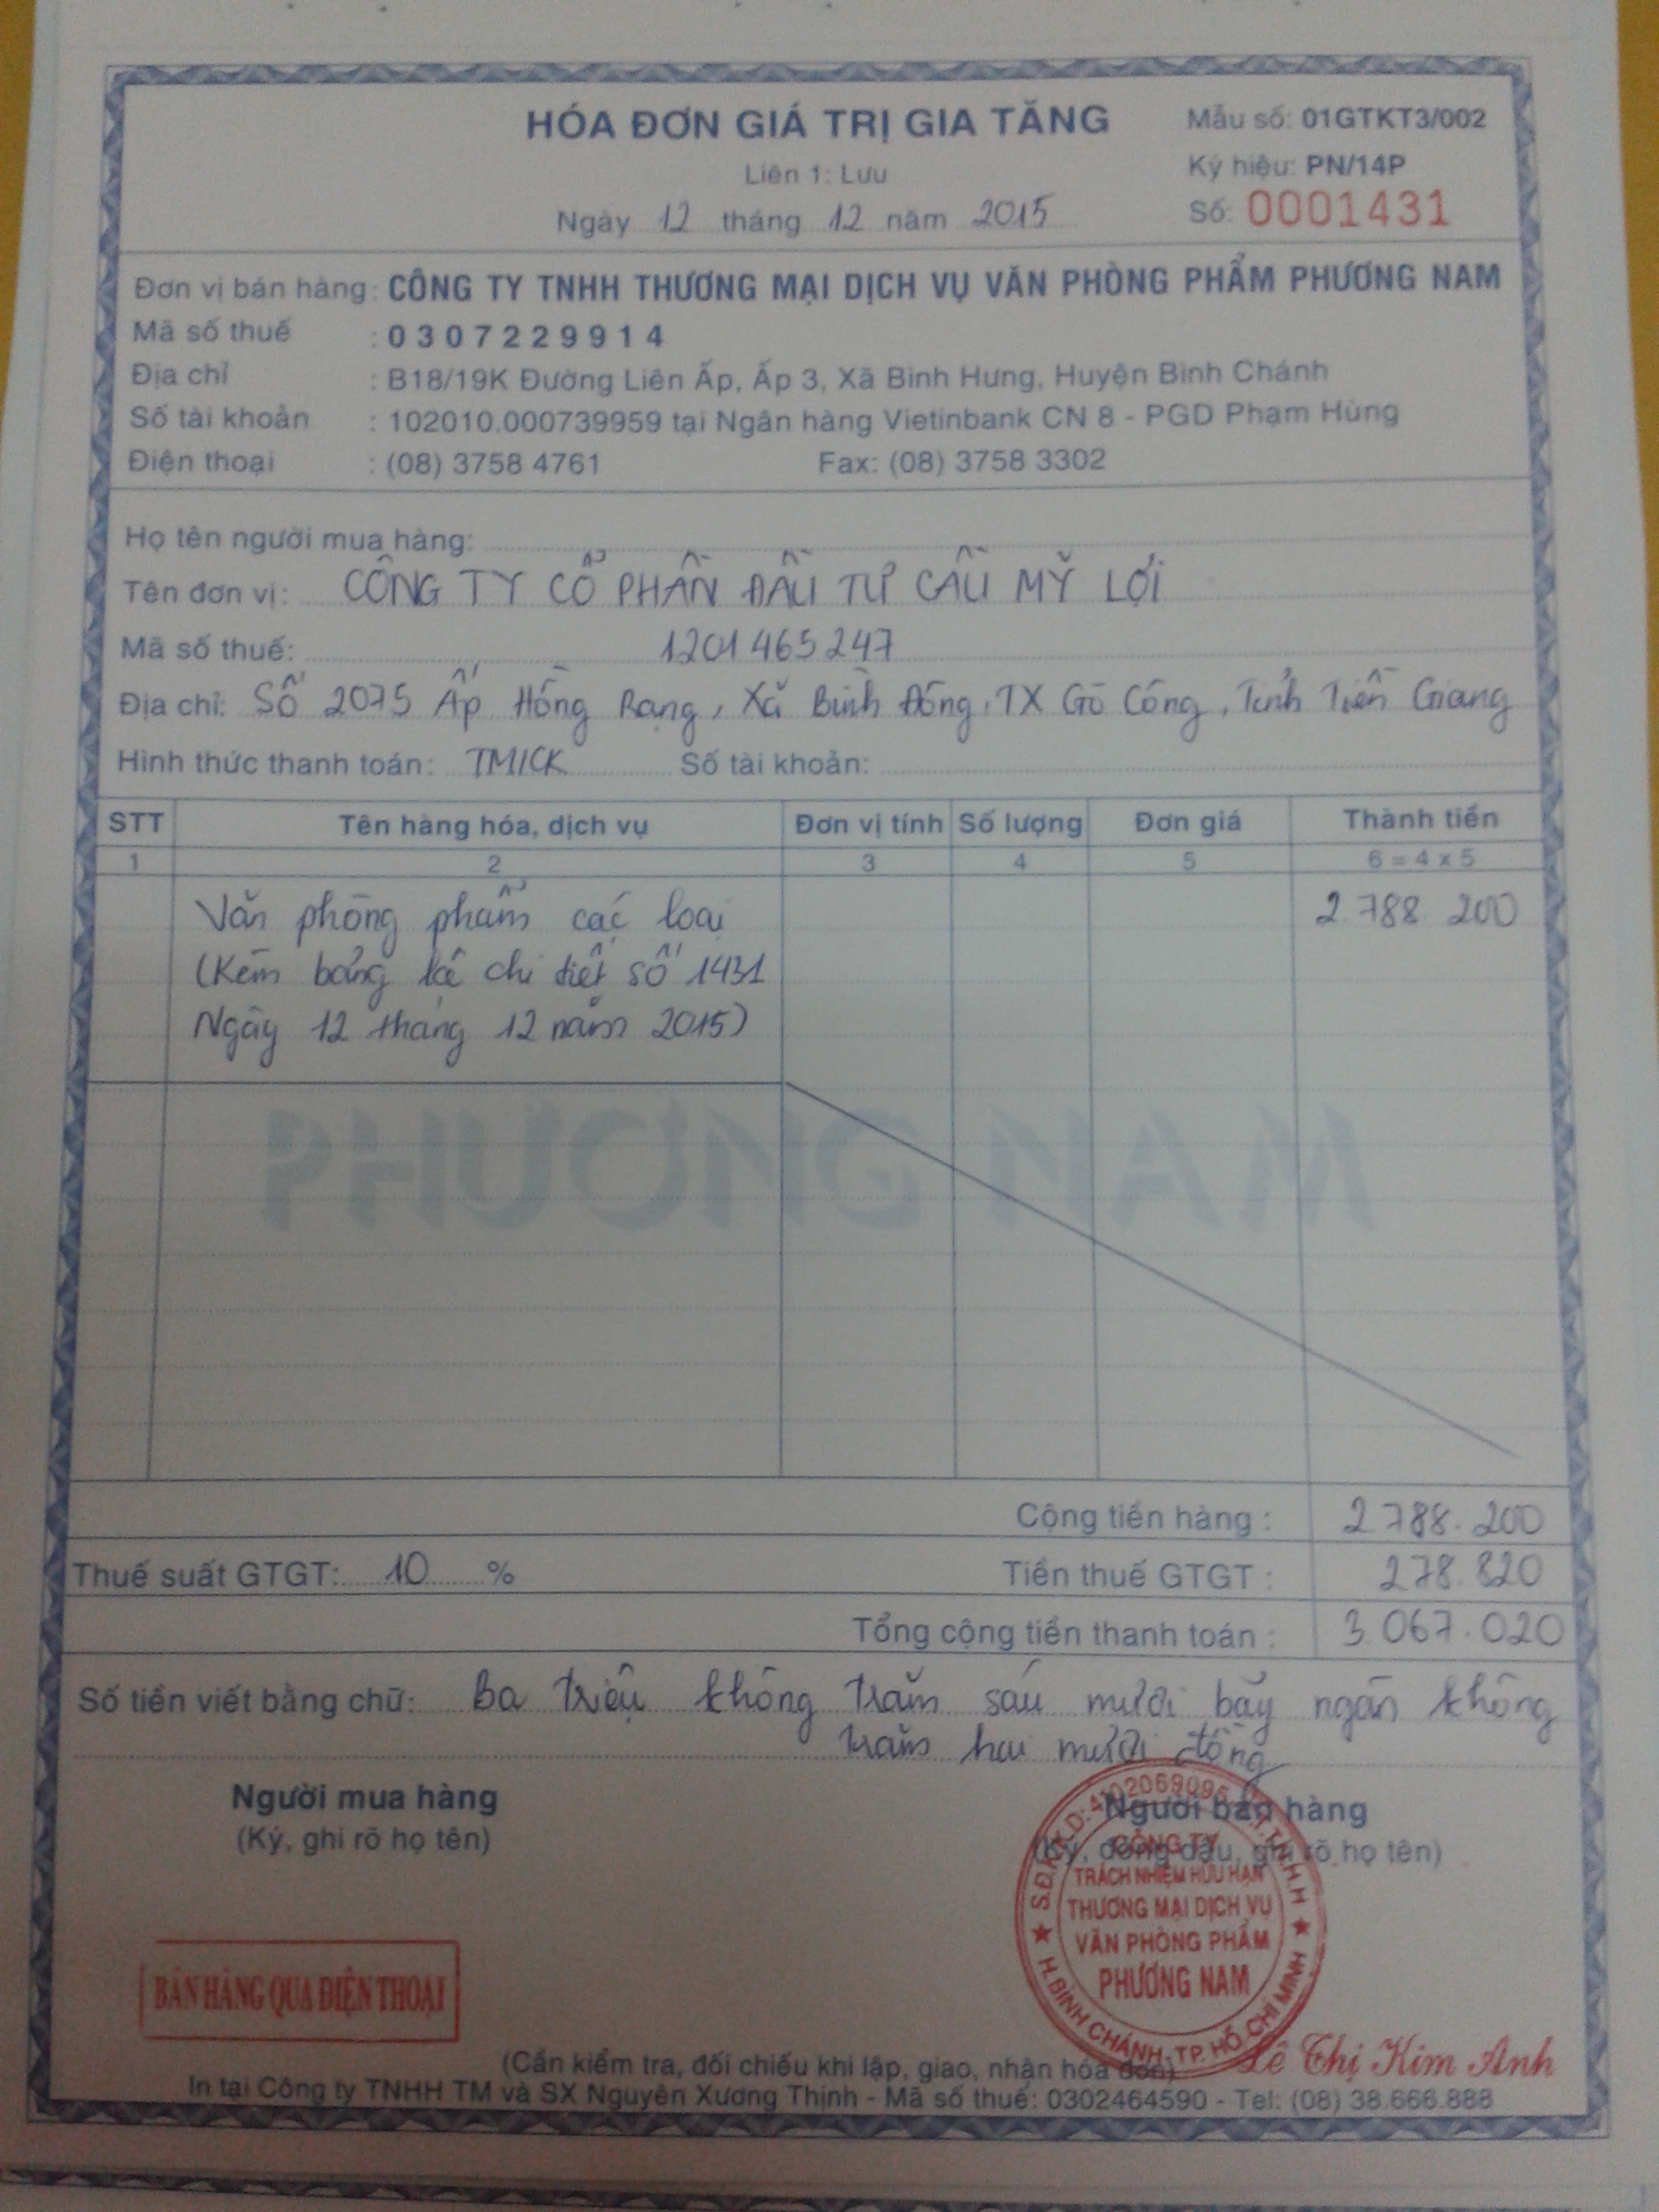 HÓA ĐƠN GIÁ TRỊ GIA TĂNG
Mẫu số: 01GTKT3/002
Liên 1: Lưu
Ký hiệu: PN/14P
Ngày 12 tháng 12 năm 2015
Số: 0001431
Đơn vị bán hàng: CÔNG TY TNHH THƯƠNG MẠI DỊCH VỤ VĂN PHÒNG PHẨM PHƯƠNG NAM
Mã số thuế : 0307229914
Địa chỉ : B18/19K Đường Liên Ấp, Ấp 3, Xã Bình Hưng, Huyện Bình Chánh
Số tài khoản : 102010.000739959 tại Ngân hàng Vietinbank CN 8 - PGD Phạm Hùng
Điện thoại : (08) 3758 4761 Fax: (08) 3758 3302
Họ tên người mua hàng:
Tên đơn vị: CÔNG TY CỔ PHẦN ĐẦU TƯ CẦU MỸ LỢI
Mã số thuế: 1201465247
Địa chỉ: Số 2075 Ấp Hồng Rạng, Xã Bình Đông, TX Gò Công, Tỉnh Tiền Giang
Hình thức thanh toán: TM/CK Số tài khoản:
STT Tên hàng hóa, dịch vụ Đơn vị tính Số lượng Đơn giá Thành tiền
1 2 3 4 5 6 = 4 x 5
Văn phòng phẩm các loại 2.788.200
(Kèm bảng kê chi tiết số 1431
Ngày 12 tháng 12 năm 2015)
PHƯƠNG NAM
Cộng tiền hàng : 2.788.200
Thuế suất GTGT: 10 % Tiền thuế GTGT : 278.820
Tổng cộng tiền thanh toán : 3.067.020
Số tiền viết bằng chữ: ba triệu không trăm sáu mươi bảy ngàn không
trăm hai mươi đồng
Người mua hàng Người bán hàng
(Ký, ghi rõ họ tên) (Ký, đóng dấu, ghi rõ họ tên)
S.Đ.K.K.D: 4102069096
CÔNG TY
TRÁCH NHIỆM HỮU HẠN
THƯƠNG MẠI DỊCH VỤ
VĂN PHÒNG PHẨM
PHƯƠNG NAM
H.BÌNH CHÁNH-TP.HỒ CHÍ MINH
BÁN HÀNG QUA ĐIỆN THOẠI
Lê Thị Kim Anh
(Cần kiểm tra, đối chiếu khi lập, giao, nhận hóa đơn)
In tại Công ty TNHH TM và SX Nguyên Xương Thịnh - Mã số thuế: 0302464590 - Tel: (08) 38.666.888